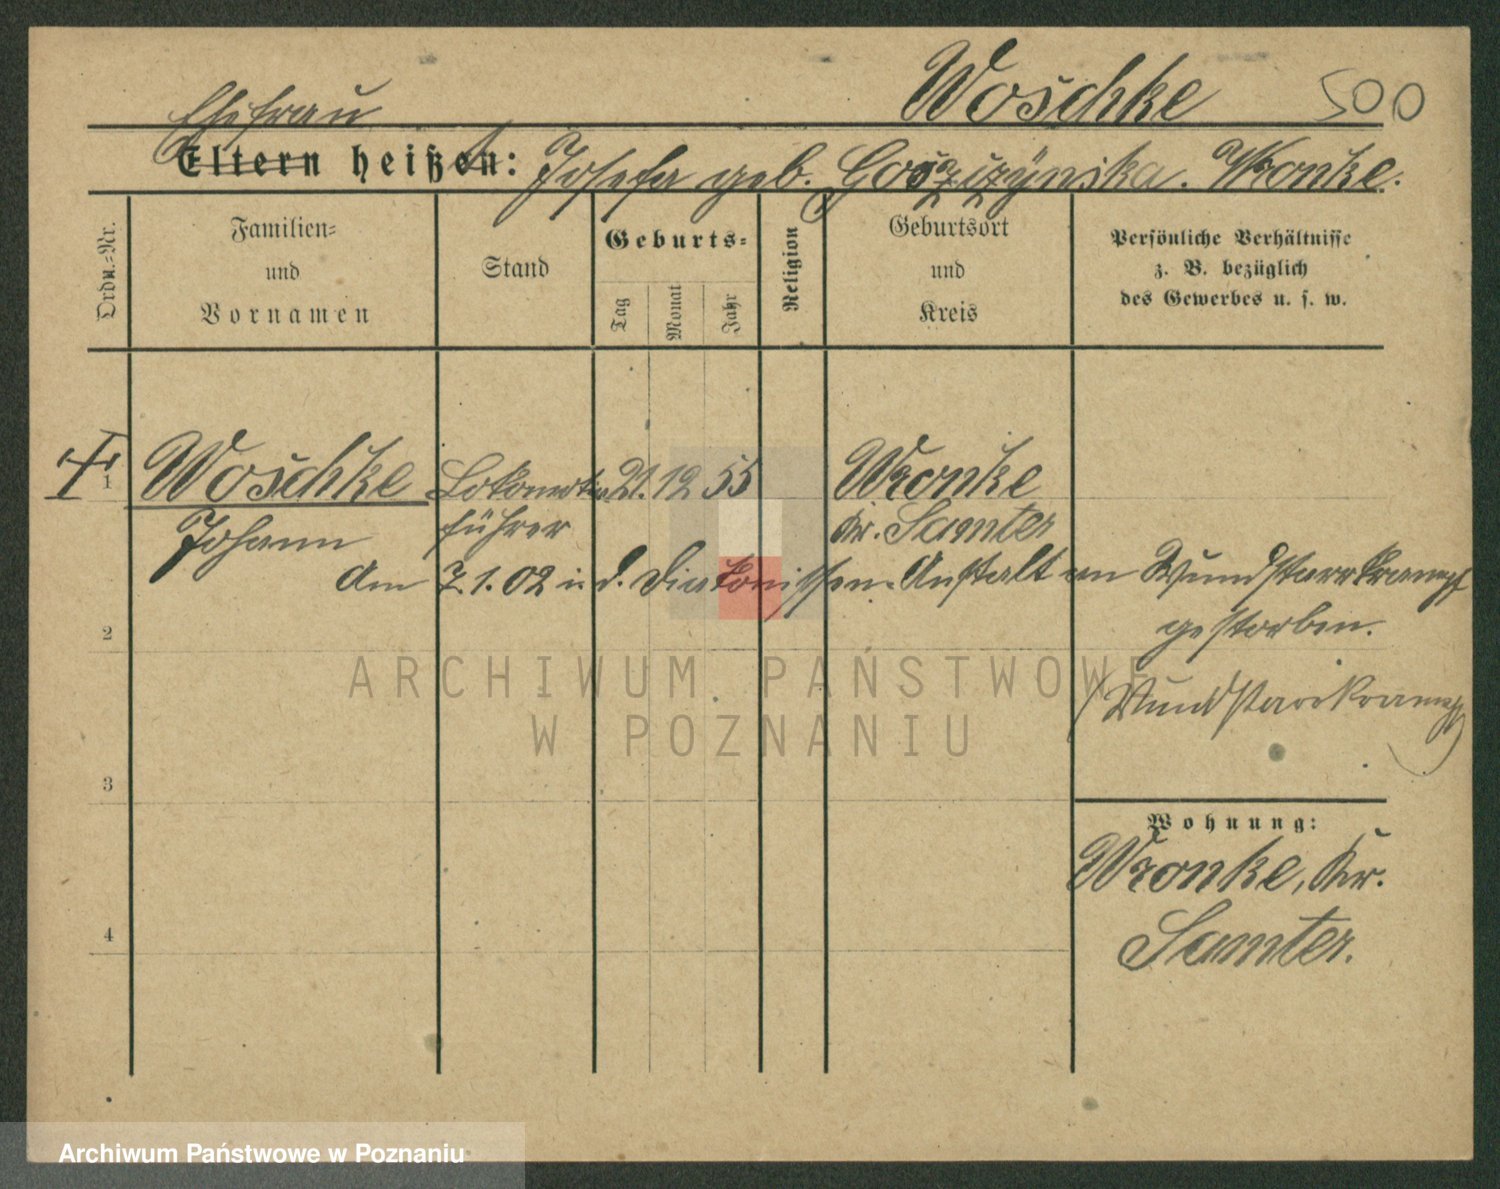 Woschke 500
Ehefrau
Eltern heißen: Josefa geb. Goszczynska. Wronke.
Ordn.-Nr.
Familien-
und
Vornamen
Stand
Geburts-
Tag
Monat
Jahr
Religion
Geburtsort
und
Kreis
Persönliche Verhältnisse
z. B. bezüglich
des Gewerbes u. s. w.
1 Woschke Lokomotiv 21. 12 55 Wronke
Johann führer Kr. Samter
Am 7.1.02 i. d. Diakonissen-Anstalt an Wundstarrkrampf
gestorben.
2
(Wundstarrkrampf)
3
Wohnung:
Wronke, Kr.
Samter.
4
ARCHIWUM PAŃSTWOWE
W POZNANIU
Archiwum Państwowe w Poznaniu